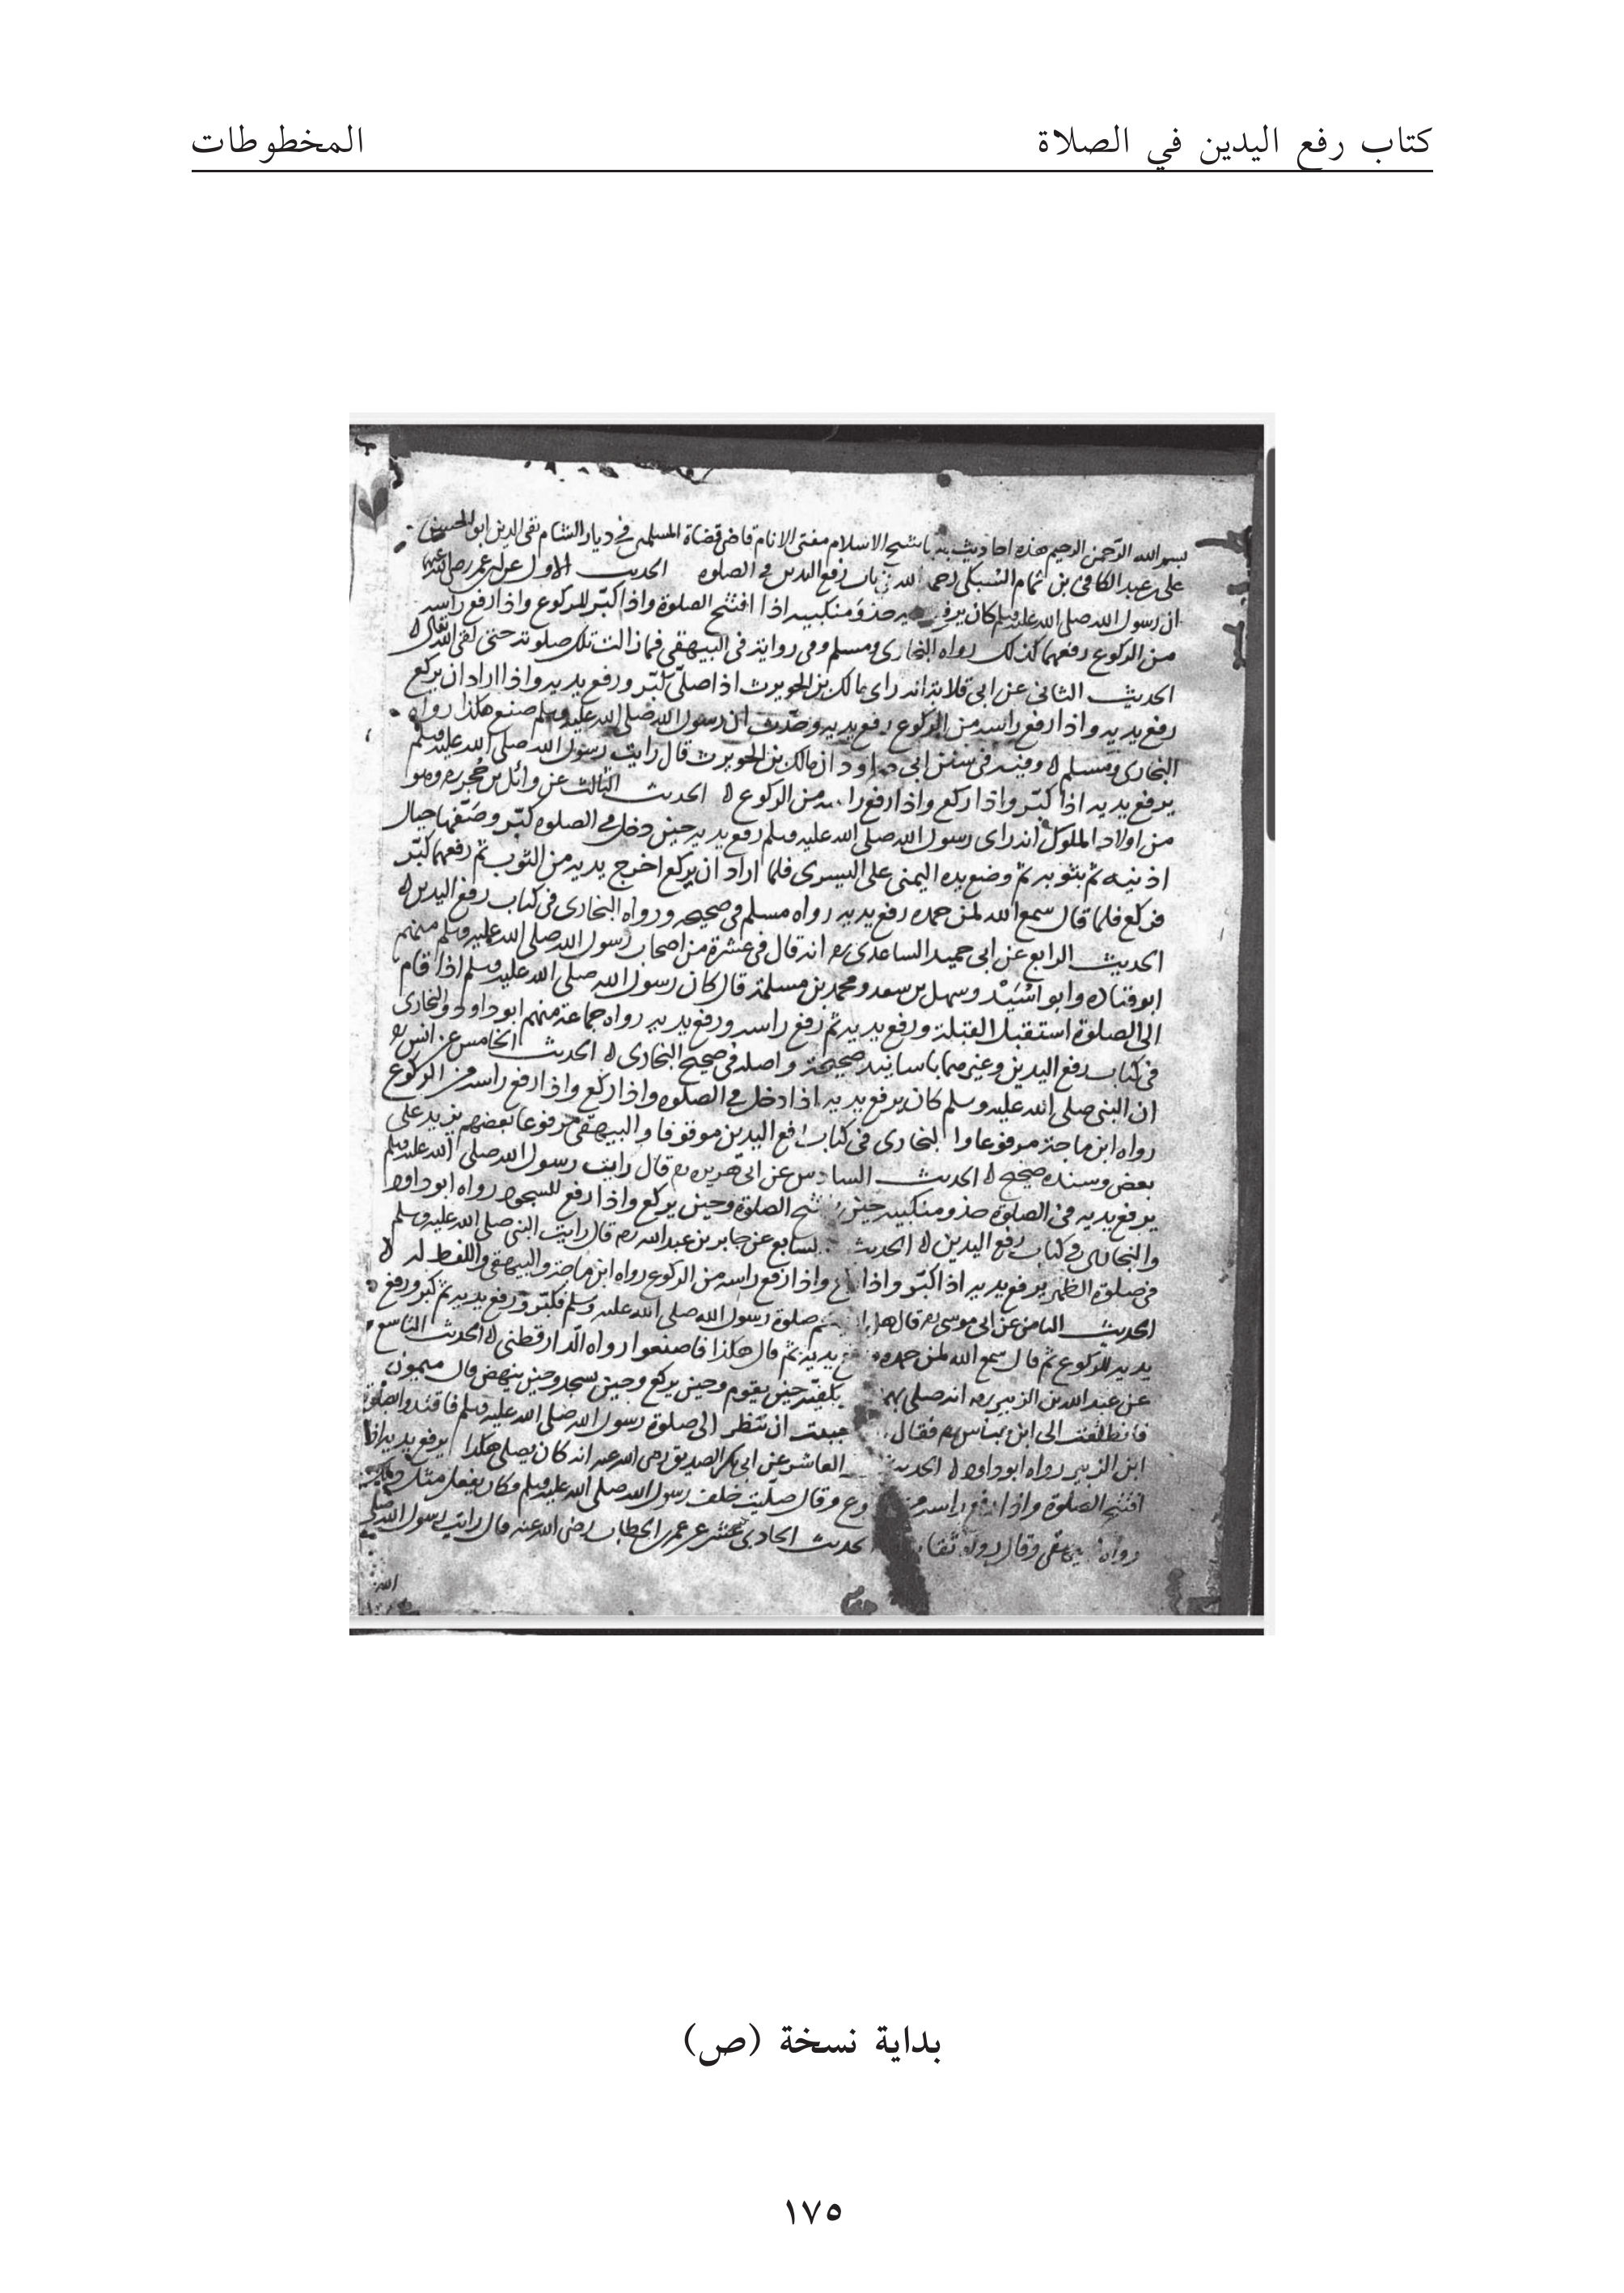 كتاب رفع اليدين في الصلاة
المخطوطات
بسم الله الرحمن الرحيم هذه احاديث شيخ الاسلام مفتى الانام قاضى قضاة المسلمين فى ديار الشام تقى الدين ابو الحسن
على بن عبد الكافى بن تمام السبكى رحمه الله فى باب رفع اليدين فى الصلوة الحديث الاول عن ابن عمر رضى الله عنهما
ان رسول الله صلى الله عليه وسلم كان يرفع حذو منكبيه اذا افتتح الصلوة واذا كبّر للركوع واذا رفع راسه
من الركوع رفعهما كذلك رواه البخارى ومسلم وفى رواية فى البيهقى فمازالت تلك صلوته حتى لقى الله تعالى
الحديث الثانى عن ابى قلابة انه راى مالك بن الحويرث اذا صلى كبّر ورفع يديه واذا اراد ان يركع
رفع يديه واذا رفع راسه من الركوع رفع يديه وحدّث ان رسول الله صلى الله عليه وسلم صنع هكذا رواه
البخارى ومسلم وفيه فى سنن ابى داود ان مالك بن الحويرث قال رايت رسول الله صلى الله عليه وسلم
يرفع يديه اذا كبّر واذا ركع واذا رفع راسه من الركوع الحديث الثالث عن وائل بن حُجر وهو
من اولاد الملوك انه راى رسول الله صلى الله عليه وسلم رفع يديه حين دخل فى الصلوه كبّر وصَفّهما حيال
اذنيه ثم بثوبه ثم وضع يده اليمنى على اليسرى فلما اراد ان يركع اخرج يديه من الثوب ثم رفعهما كبّر
فركع فلما قال سمع الله لمن حمده رفع يديه رواه مسلم فى صحيحه ورواه البخارى فى كتاب رفع اليدين
الحديث الرابع عن ابى حميد الساعدى انه قال فى عشرة من اصحاب رسول الله صلى الله عليه وسلم منهم
ابو قتاده وابو اسَيْد وسهل بن سعد ومحمد بن مسلمة قال كان رسول الله صلى الله عليه وسلم اذا قام
الى الصلوة استقبل القبلة ورفع يديه ثم رفع راسه ورفع يديه رواه جماعة منهم ابو داود والبخارى
فى كتاب رفع اليدين وغيرهما باسانيد صحيحة واصله فى صحيح البخارى الحديث الخامس عن انس
ان النبى صلى الله عليه وسلم كان يرفع يديه اذا دخل فى الصلوه واذا ركع واذا رفع راسه من الركوع
رواه ابن ماجة مرفوعا والبخارى فى كتاب رفع اليدين موقوفا والبيهقى مرفوعا بعضهم يزيد على
بعض وسنده صحيح الحديث السادس عن ابى هريره قال رايت رسول الله صلى الله عليه وسلم
يرفع يديه فى الصلوة حذو منكبيه حين الصلوة وحين يركع واذا رفع للسجود رواه ابو داود
والبخارى فى كتاب رفع اليدين الحديث السابع عن جابر بن عبد الله قال رايت النبى صلى الله عليه وسلم
فى صلوة الظهر يرفع يديه اذا كبّر واذا واذا رفع راسه من الركوع رواه ابن ماجة والبيهقى واللفظ له
الحديث الثامن عن ابى موسى قال هل صلوة رسول الله صلى الله عليه وسلم فكبّر ورفع يديه ثم كبر ورفع
يديه للركوع ثم قال سمع الله لمن حمده يديه ثم قال هكذا فاصنعوا رواه الدارقطنى الحديث التاسع
عن عبد الله بن الزبير انه صلى بهم بكفيه حين يقوم وحين يركع وحين يسجد وحين ينهض قال ميمون
فانطلقت الى ابن عباس فقال ان تنظر الى صلوة رسول الله صلى الله عليه وسلم فاقتد بصلوة
ابن الزبير رواه ابو داود الحديث العاشر عن ابى بكر الصديق رضى الله عنه انه كان يصلى هكذا يرفع يديه اذا
افتتح الصلوة واذا رفع راسه من وقال صليت خلف رسول الله صلى الله عليه وسلم وكان يفعل مثل
رواه وقال رواته ثقات الحديث الحادى عشر عن عمر بن الخطاب رضى الله عنه قال رايت رسول الله صلى
الله
بداية نسخة (ص)
١٧٥